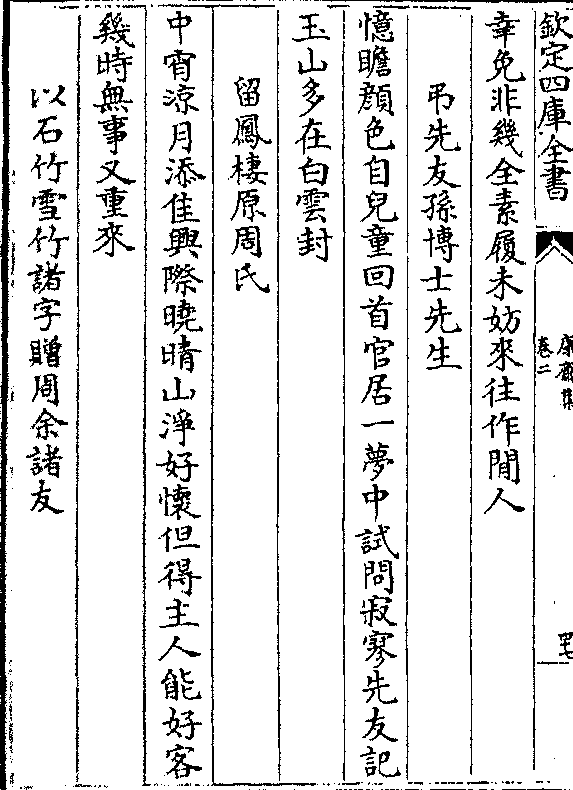 欽定四庫全書
康齋集
卷二
罕
幸免非幾全素履未妨來往作閒人
弔先友孫博士先生
憶瞻顔色自兒童回首官居一夢中試問寂寥先友記
玉山多在白雲封
留鳳棲原周氏
中宵凉月添佳興際曉晴山淨好懷但得主人能好客
幾時無事又重來
以石竹雪竹諸字贈周余諸友